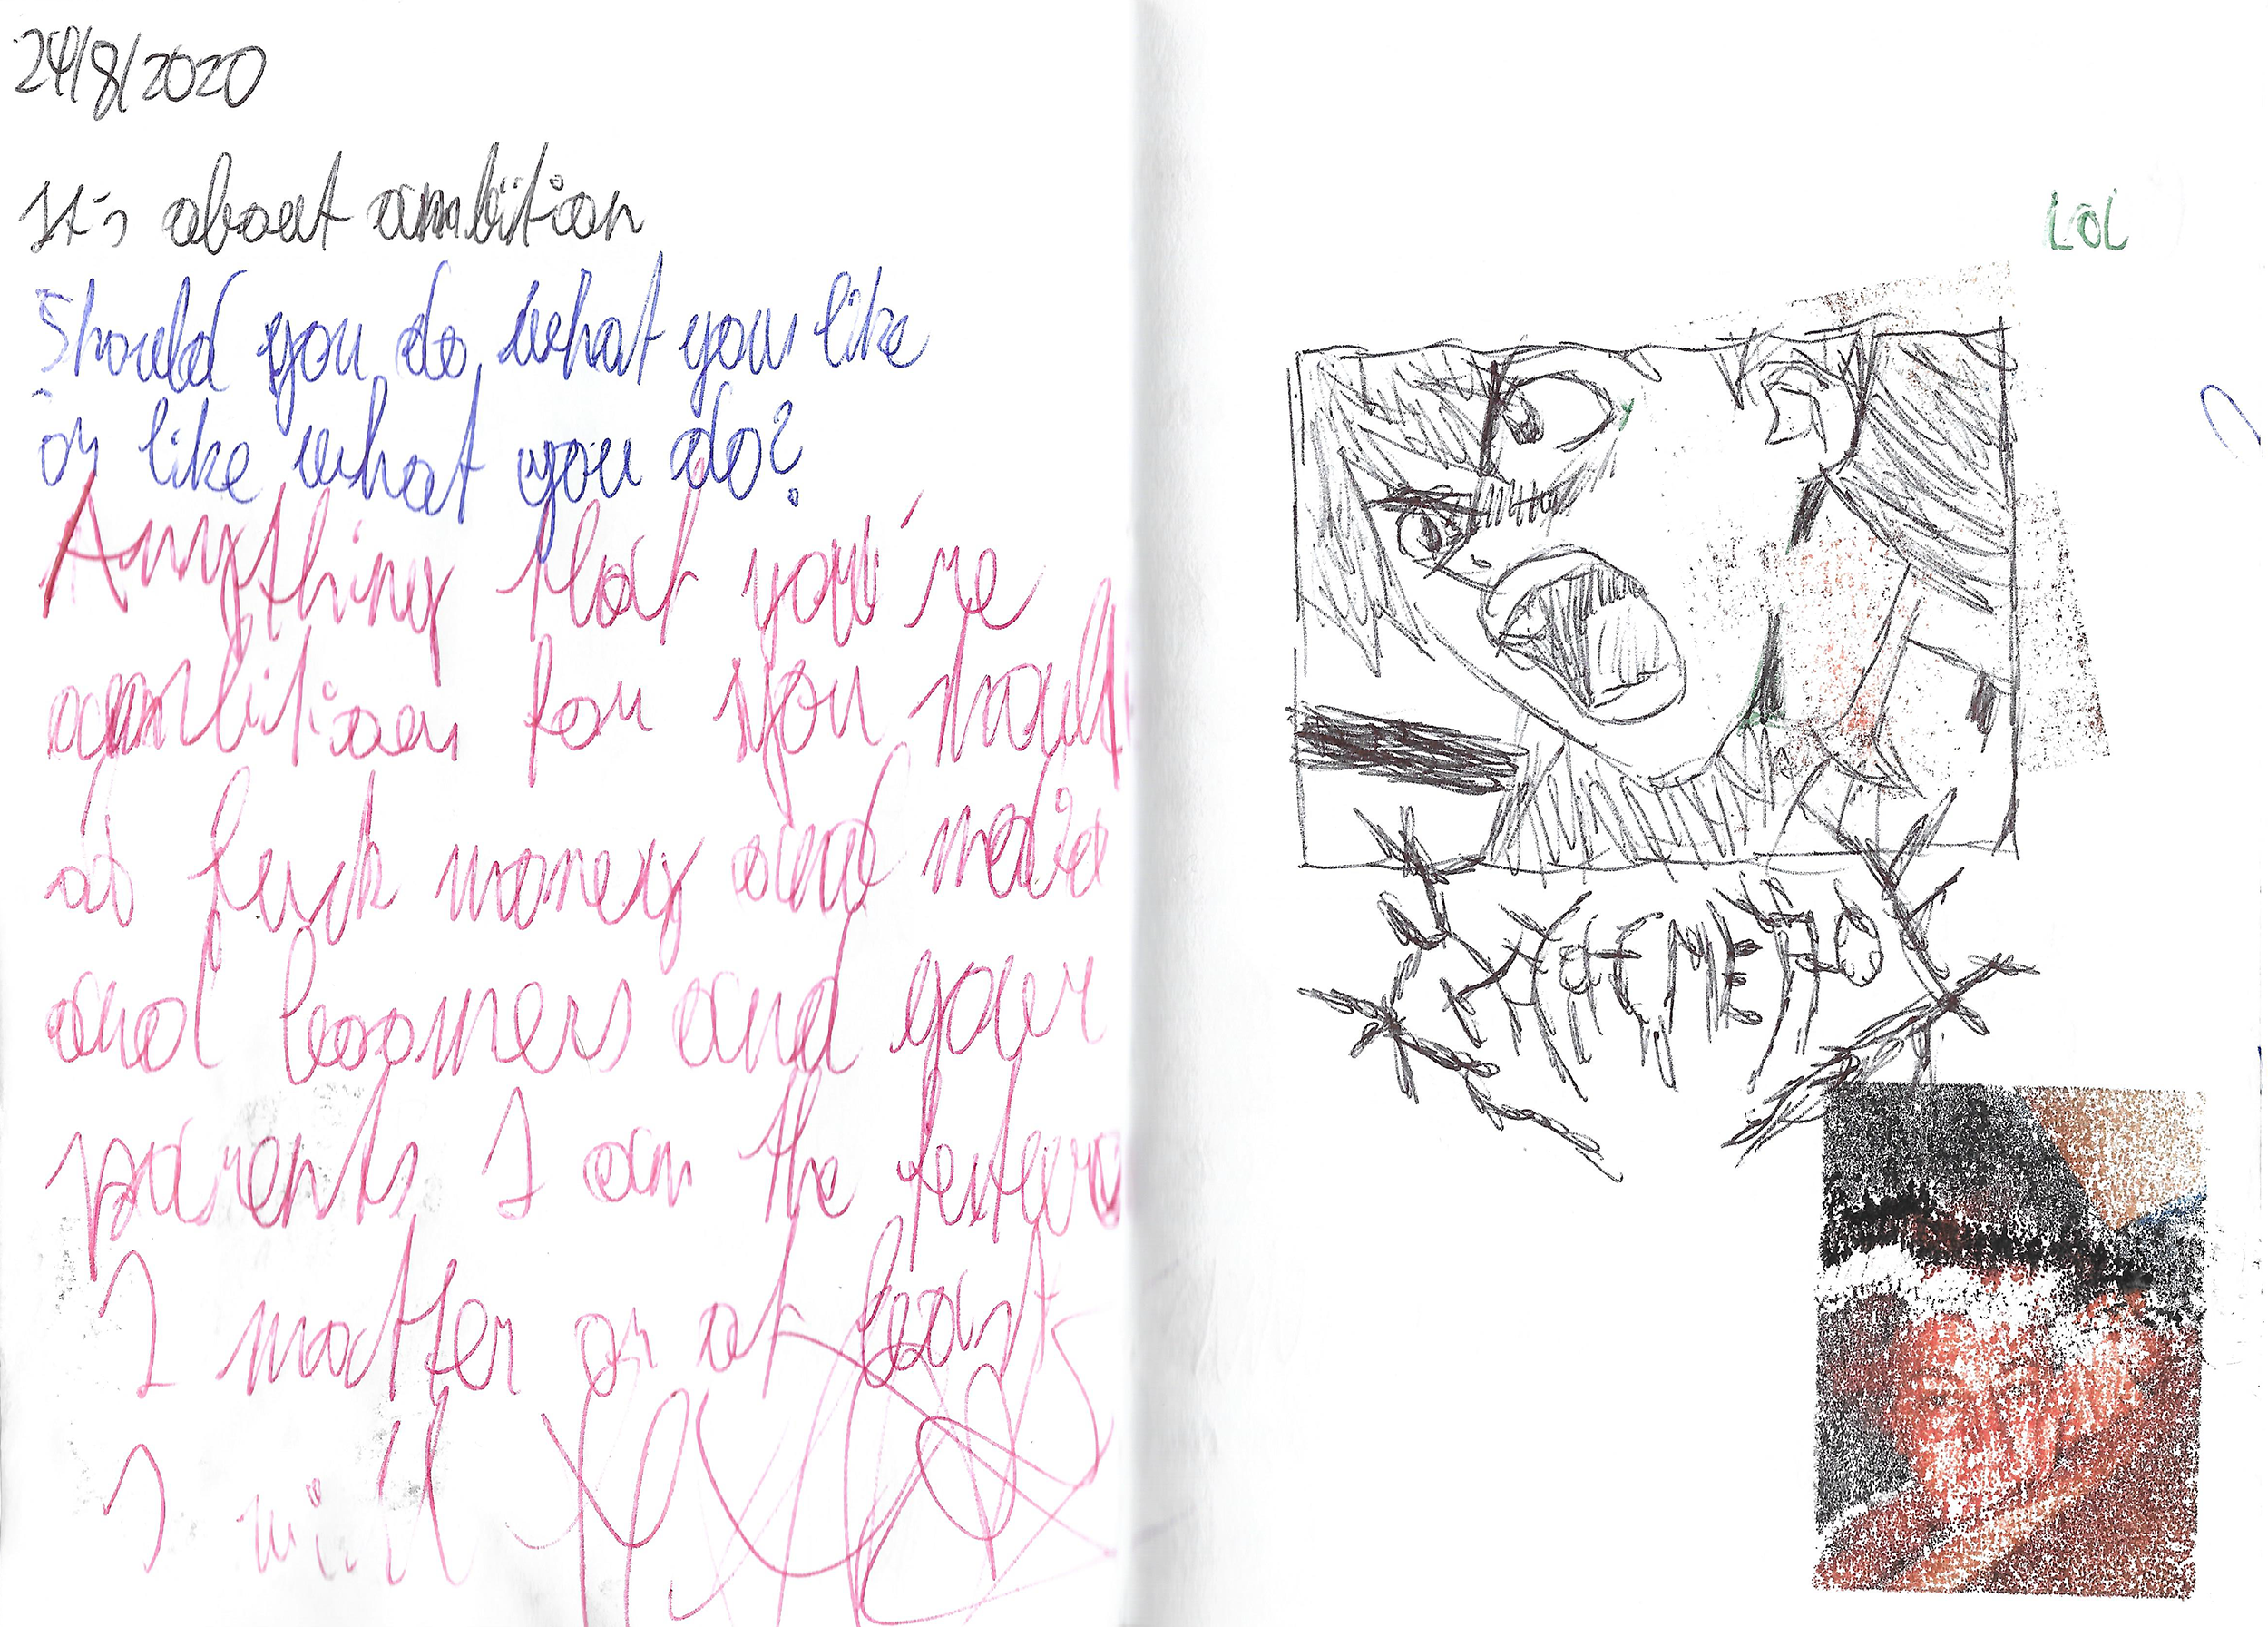 24/8/2020
It's about ambition
Should you do what you like
or like what you do?
Anything that you're
ambition for you should
fuck money and media
and boomers and your
parents I am the future
I matter or at least
I will
LOL